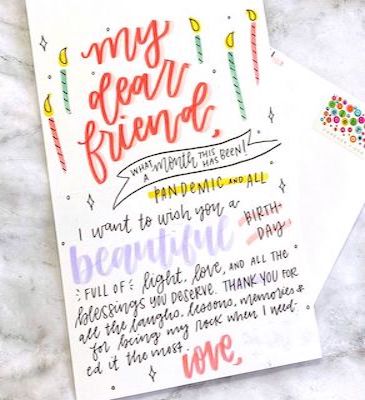 my
dear
friend,
WHAT A month THIS HAS BEEN!
PANDEMIC AND ALL
I want to wish you a
beautiful BIRTH-DAY
FULL OF light, love, AND ALL THE
blessings YOU DESERVE. THANK YOU FOR
all the laughs, lessons, memories &
for being my rock when I need-
ed it the most.
love,